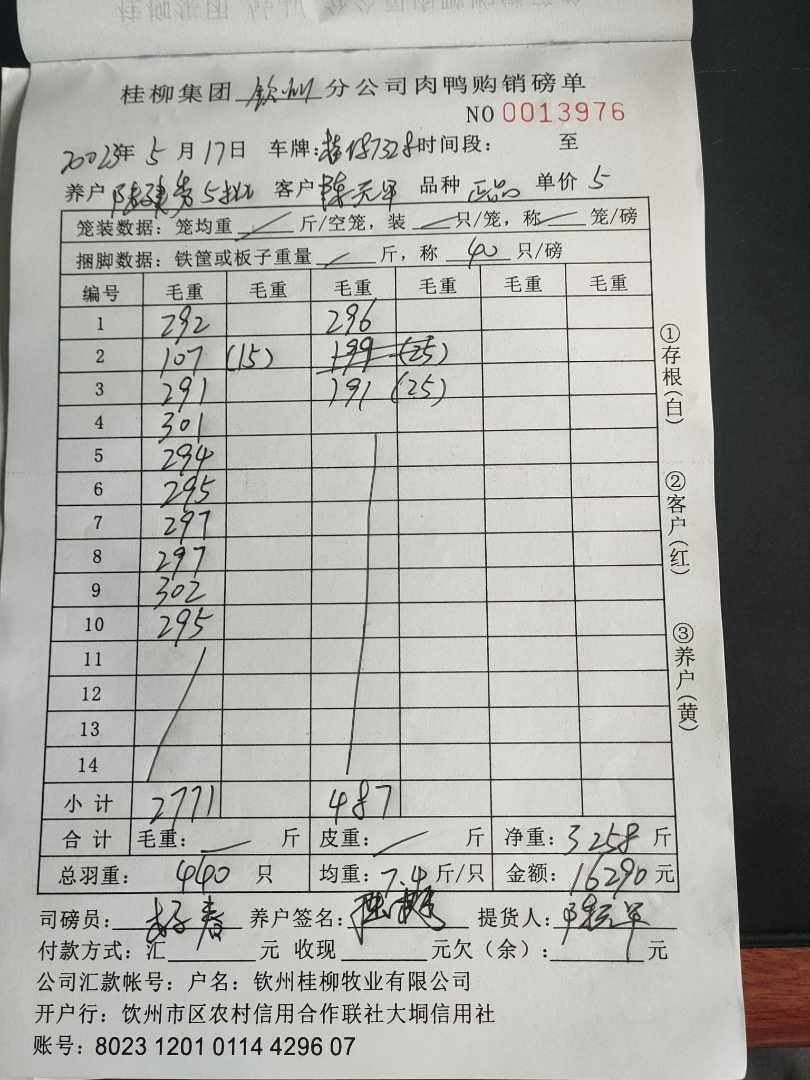 桂柳集团 钦州 分公司肉鸭购销磅单
NO 0013976
2023年 5 月 17 日 车牌: 时间段: 至
养户 5批 客户 陈元军 品种 正品 单价 5
笼装数据: 笼均重 斤/空笼, 装 只/笼, 称 笼/磅
捆脚数据: 铁筐或板子重量 斤, 称 40 只/磅
编号 毛重 毛重 毛重 毛重 毛重 毛重
1 292 296
2 107 (15) 199 (25)
3 291 191 (25)
4 301
5 294
6 295
7 297
8 297
9 302
10 295
11
12
13
14
小 计 2771 487
合 计 毛重: 斤 皮重: 斤 净重: 3258 斤
总羽重: 440 只 均重: 7.4 斤/只 金额: 16290 元
司磅员: 养户签名: 提货人: 陈元军
付款方式: 汇 元 收现 元欠 (余): 元
公司汇款帐号: 户名: 钦州桂柳牧业有限公司
开户行: 钦州市区农村信用合作联社大垌信用社
账号: 8023 1201 0114 4296 07
①存根(白)
②客户(红)
③养户(黄)